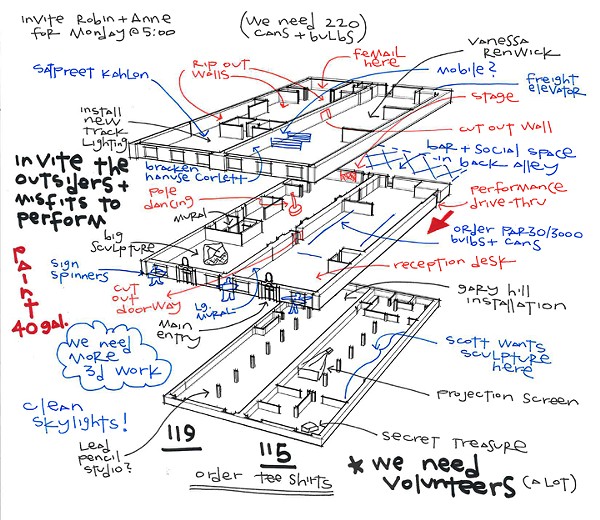 invite Robin + Anne
for Monday @ 5:00
(we need 220
cans + bulbs)
femail
here
vanessa
renwick
satpreet kahlon
rip out
walls
mobile?
freight
elevator
stage
install
new
track
lighting
cut out wall
bar + social space
in
back alley
invite the
outsiders +
misfits to
perform
bracken
hanuse corlett
pole
dancing
mural
performance
drive-thru
order PAR30/3000
bulbs + cans
big
sculpture
sign
spinners
reception desk
paint
40 gal.
cut
out
doorway
Lg.
mural
main
entry
gary hill
installation
we need
more
3d work
scott wants
sculpture
here
clean
skylights!
projection screen
Lead
pencil
studio?
119
115
secret treasure
order tee shirts
* we need
volunteers (a lot)